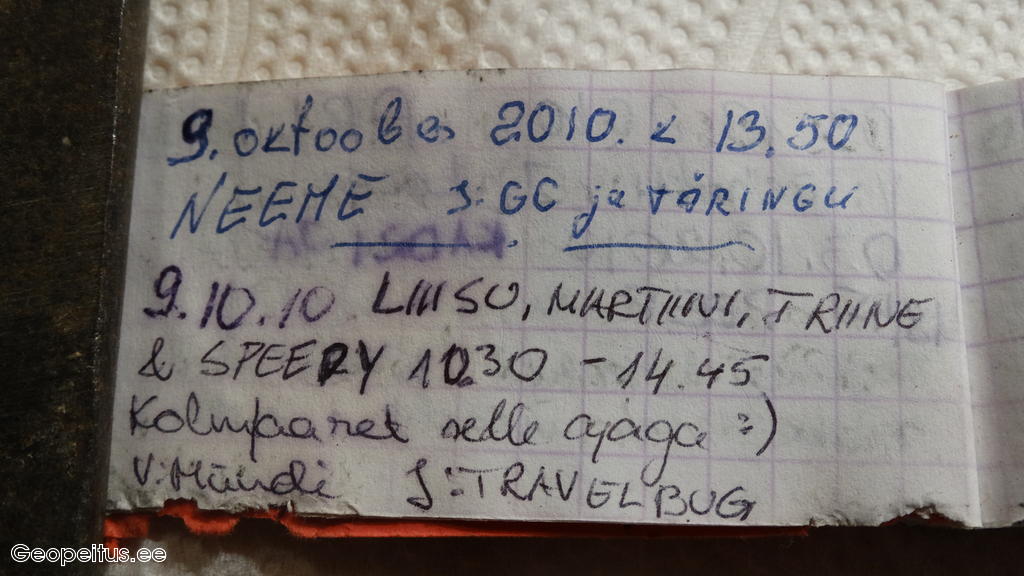 9. oktoober 2010. k 13.50
NEEME J: GC ja TÄRINGU
9.10.10 LIISU, MARTIINI, TRIINE
& SPEEDY 10.30 - 14.45
Kolmpaaret selle ajaga :)
V: Mündi J: TRAVELBUG
Geopeitus.ee